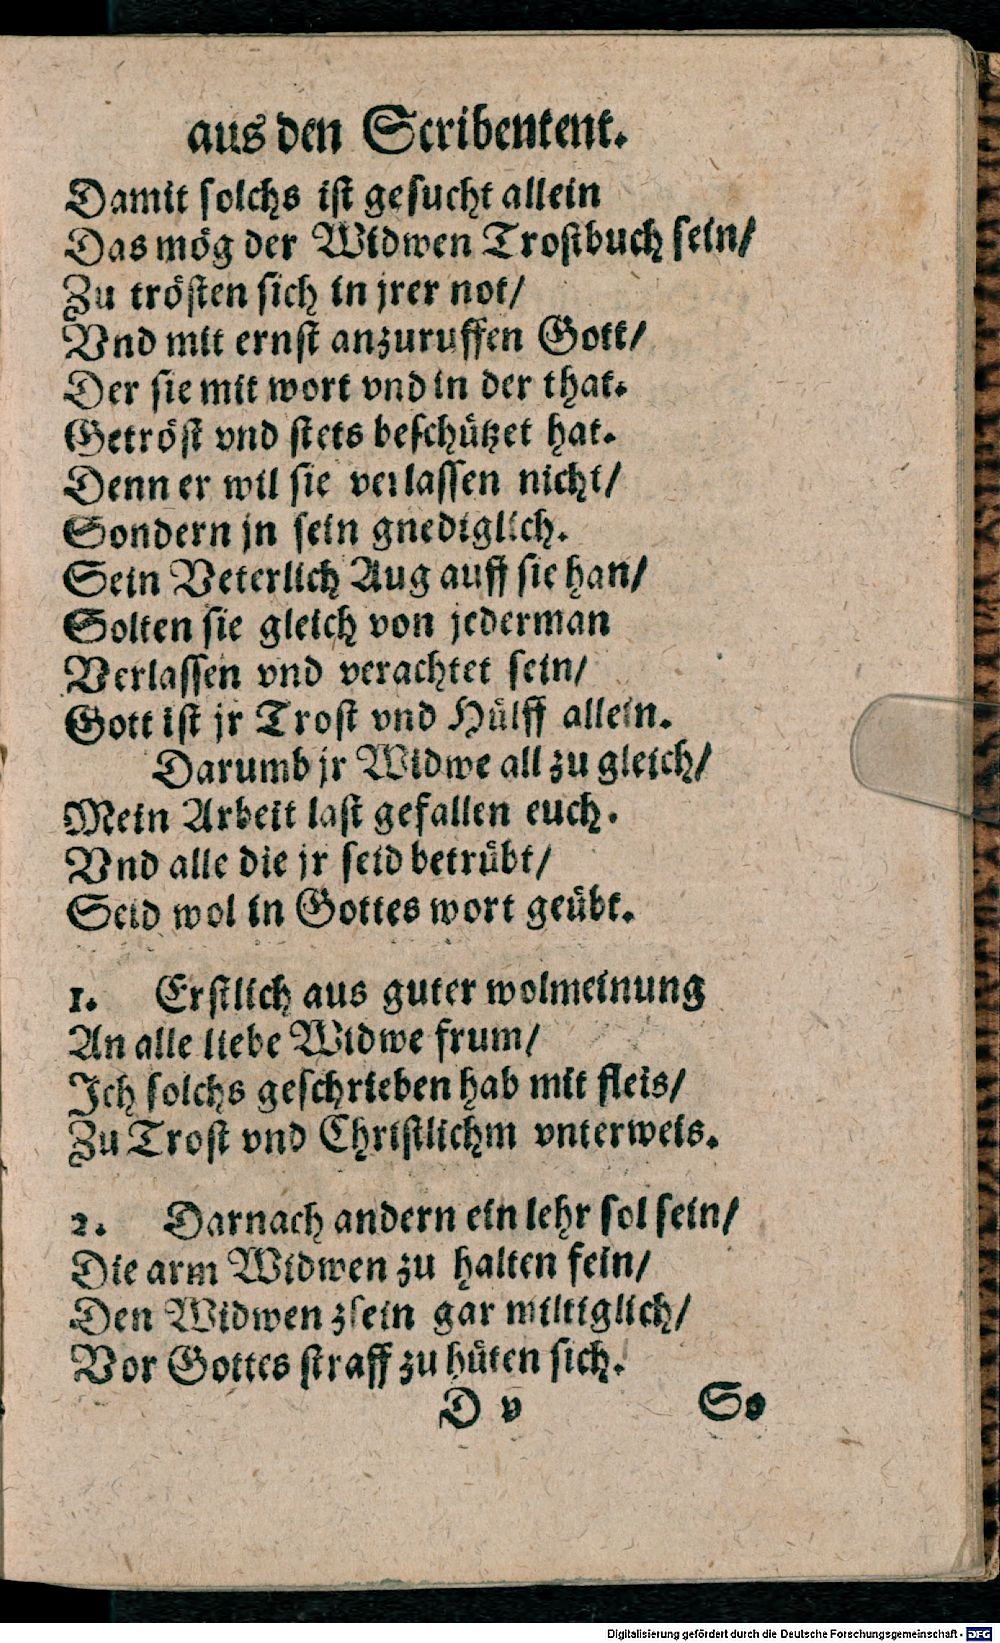 aus den Scribentent.
Damit solchs ist gesucht allein
Das mög der Widwen Trostbuch sein/
Zu trösten sich in jrer not/
Vnd mit ernst anzuruffen Gott/
Der sie mit wort vnd in der that.
Getröst vnd stets beschützet hat.
Denn er wil sie verlassen nicht/
Sondern jn sein gnediglich.
Sein Veterlich Aug auff sie han/
Solten sie gleich von jederman
Verlassen vnd verachtet sein/
Gott ist jr Trost vnd Hülff allein.
Darumb jr Widwe all zu gleich/
Mein Arbeit last gefallen euch.
Vnd alle die jr seid betrübt/
Seid wol in Gottes wort geübt.
1. Erstlich aus guter wolmeinung
An alle liebe Widwe frum/
Ich solchs geschrieben hab mit fleis/
Zu Trost vnd Christlichm vnterweis.
2. Darnach andern ein lehr sol sein/
Die arm Widwen zu halten fein/
Den Widwen zsein gar miltiglich/
Vor Gottes straff zu hüten sich.
D v So
Digitalisierung gefördert durch die Deutsche Forschungsgemeinschaft - DFG